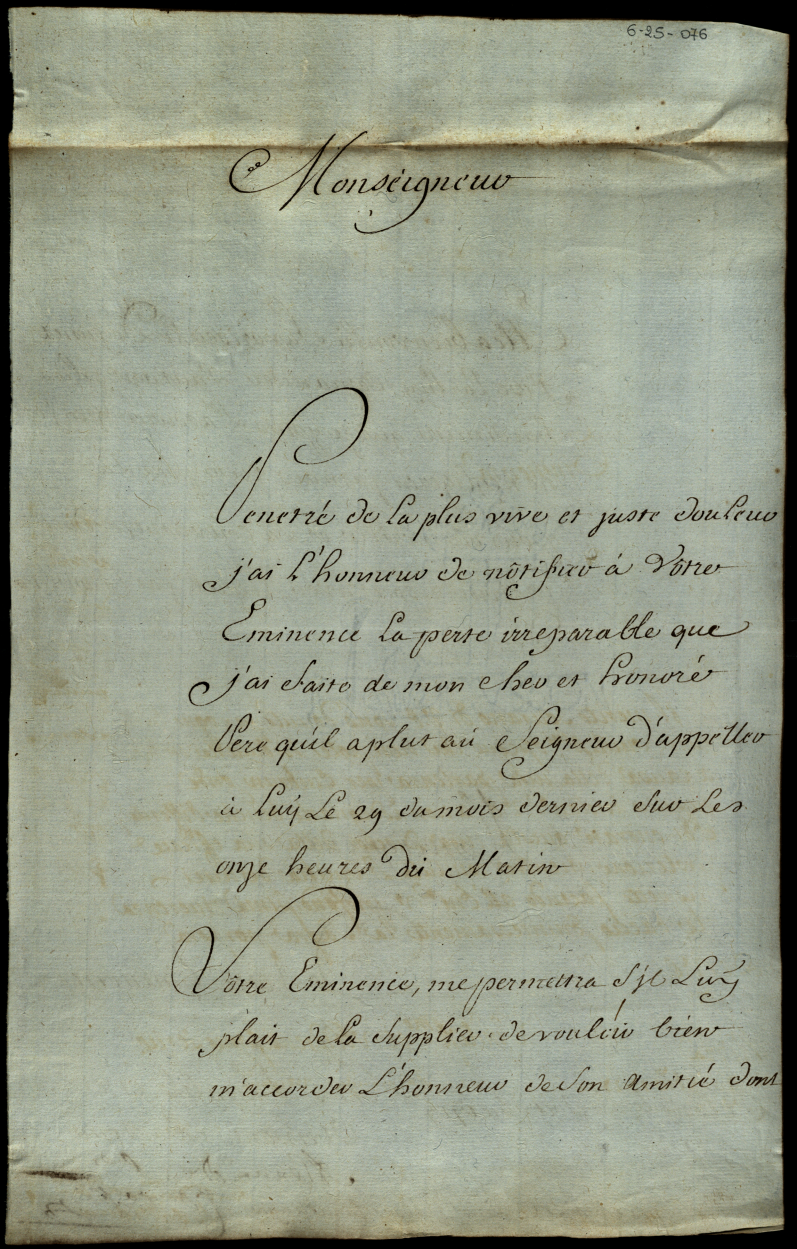 6-25-076
Monseigneur
Penetré de la plus vive et juste douleur
j'ai L'honneur de nôtifier à Vôtre
Eminence La perte irreparable que
j'ai faite de mon cher et honoré
Pere qu'il a plut au Seigneur d'appeller
à Luÿ Le 29 du mois dernier sur Les
onze heures du Matin
Vôtre Eminence, me permettra s'il Luÿ
plait de La supplier de vouloir bien
m'accorder L'honneur de son amitié dont